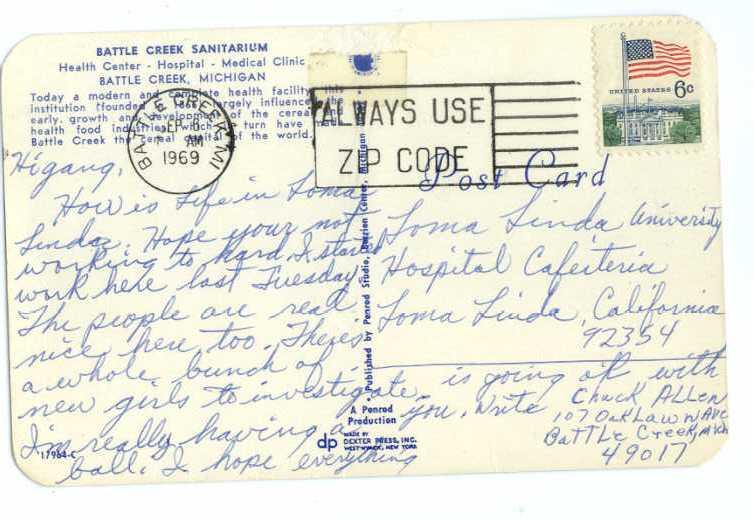 BATTLE CREEK SANITARIUM
Health Center - Hospital - Medical Clinic
BATTLE CREEK, MICHIGAN
Today a modern and complete health facility, this
institution (founded largely influenced the
early growth and development of the cereal and
health food industries, which in turn have made
Battle Creek the cereal capital of the world.
BATTLE CREEK MI
SEP
AM
1969
ALWAYS USE
ZIP CODE
UNITED STATES 6c
Post Card
Hi gang,
How is life in Loma
Linda. Hope your not
working to hard. I started
work here last Tuesday
The people are real
nice here too. Theres
a whole bunch of
new girls to investigate,
I'm really having a
ball. I hope everything
is going ok with
you. Write
Published by Penrod Studio, Berrien Center, Michigan
A Penrod
Production
dp MADE BY
DEXTER PRESS, INC.
WEST NYACK, NEW YORK
17964-C
Loma Linda University
Hospital Cafeiteria
Loma Linda, California
92354
Chuck Allen
107 Oaklawn Ave
Battle Creek, Mich
49017